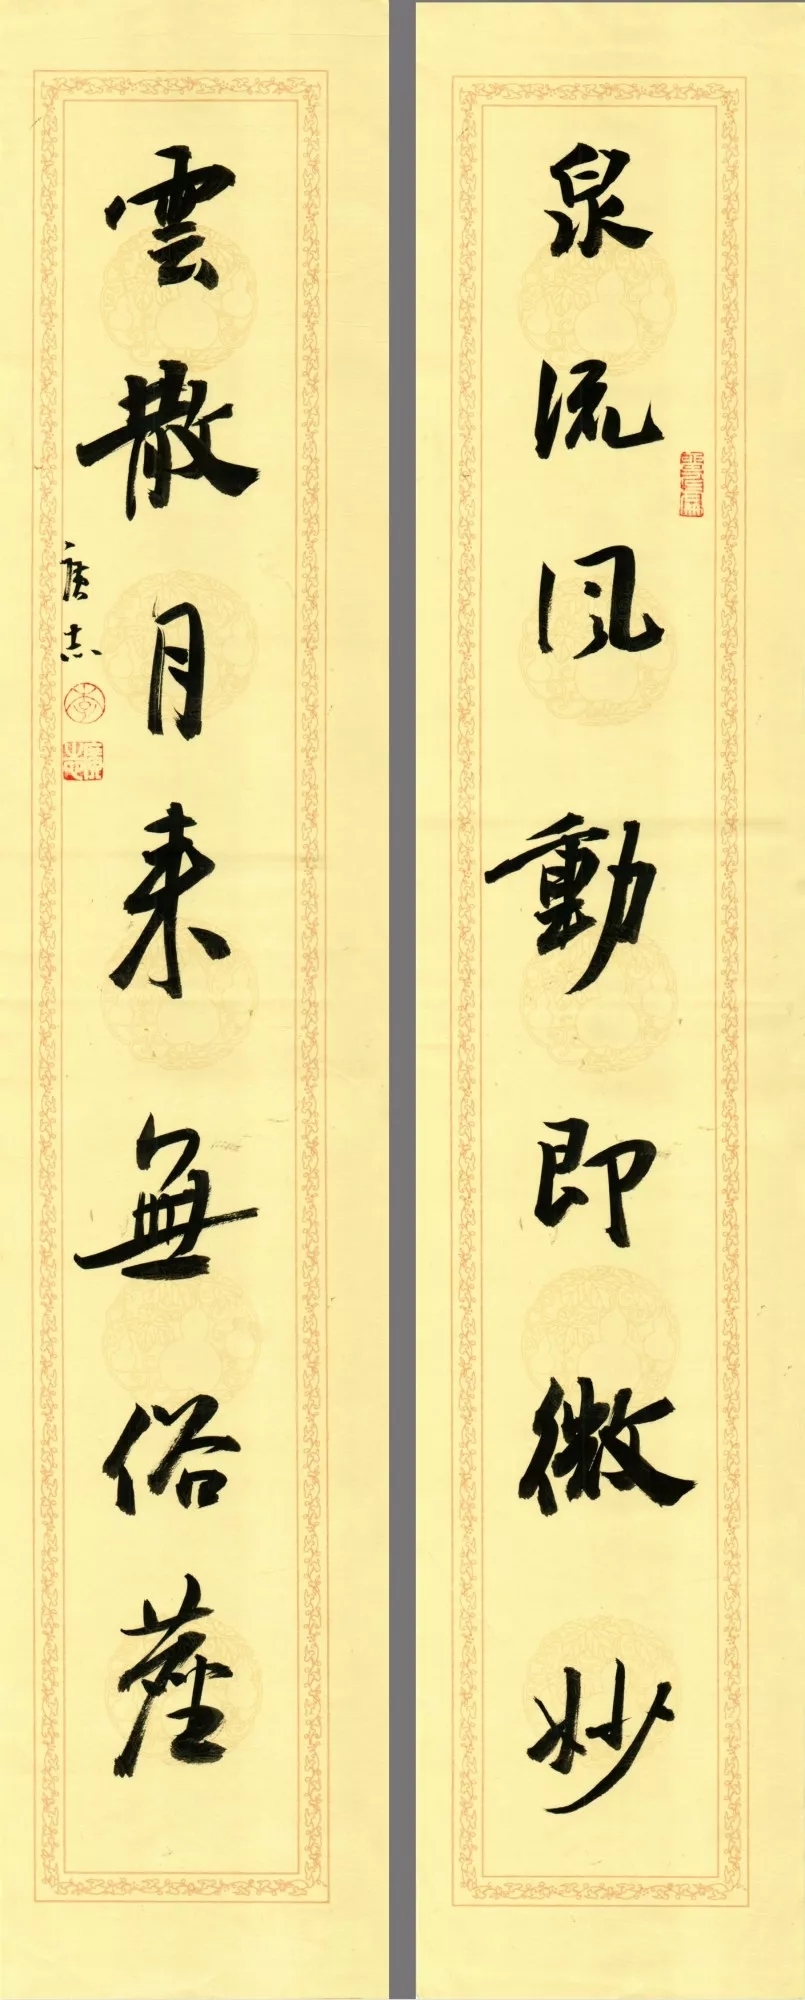 泉流風動即微妙
雲散月来無俗塵
志
李